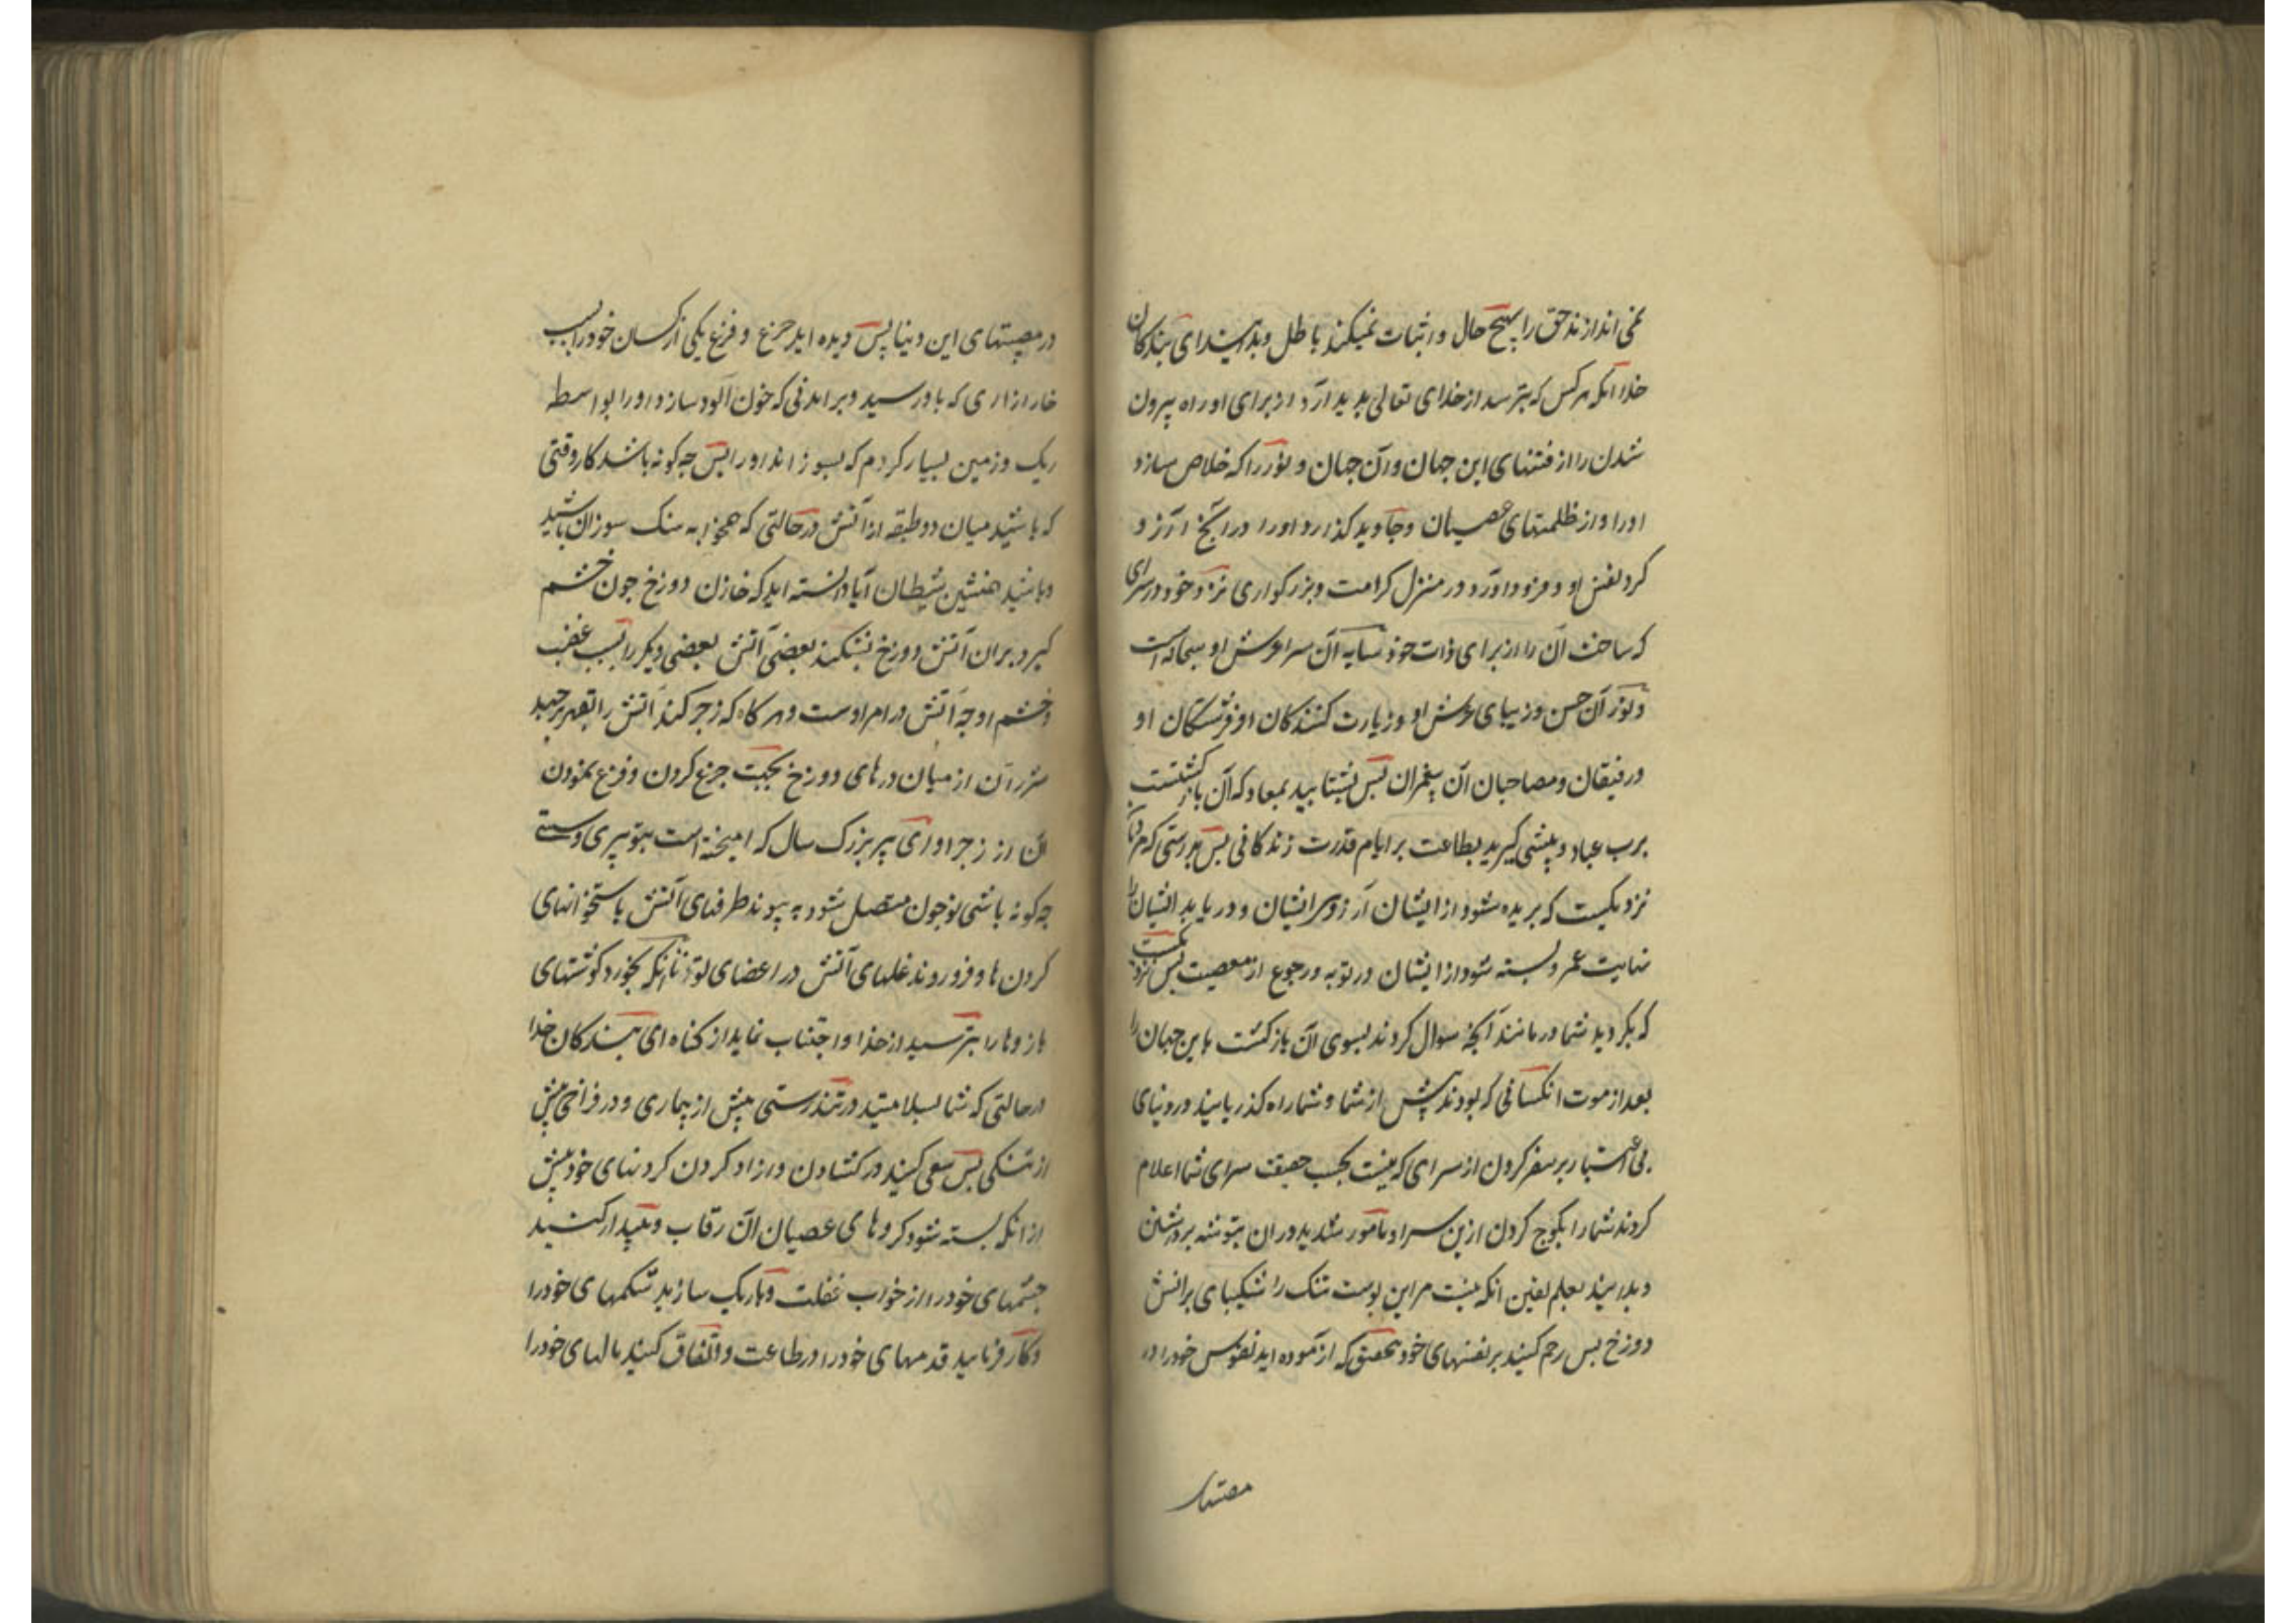 نمی اندازند حق را بهیچ حال و اثبات نمیکند باطل و بدانید ای بندکان
خدا آنکه هر کس که بترسد از خدای تعالی پدید آرد از برای او راه بیرون
شدن را از فتنهای این جهان و آن جهان و نور را که خلاص سازد
او را از ظلمتهای عصیان و جاوید کذارد او را در آنچ آرزو
کرد نفس او و فرود آورد در منزل کرامت و بزرکواری نزد خود در سرای
که ساخت آن را از برای ذات خود سایه آن سرا عرش او سبحانه است
و نور آن حسن و زیبای عرش او و زیارت کنندکان او فرشتکان او
و رفیقان و مصاحبان آن پیغمبران پس بشتابید بمعاد که آن بازکشتست
برب عباد و پیشی کیرید بطاعت بر ایام قدرت زندکانی پس بدرستی که مردمان
نزدیکست که بریده شود از ایشان آرزوی ایشان و دریابد ایشان را
نهایت عمر و بسته شود از ایشان در توبه و رجوع از معصیت پس نزدیکست
که بکردید شما در مانند آنچه سوال کردند بسوی آن بازکشت باین جهان را
بعد از موت انکسانی که بودند پیش از شما و شما راه کذریانید در دنیای
بی اعتبار بر سفر کردن از سرای که نیست بحسب حقیقت سرای شما اعلام
کردند شما را بکوچ کردن ازین سرا و مامور شدید در آن بتوشه برداشتن
و بدانید بعلم یقین انکه نیست مر این پوست تنک را شکیبای بر اتش
دوزخ پس رحم کنید بر نفسهای خود بتحقیق که ازموده اید نفوس خود را در
در مصیبتهای این دنیا پس دیده اید جزع و فزع یکی از کسان خود را بسبب
خار ازاری که باو رسید و بر امدنی که خون آلود سازد او را بواسطه
ریک و زمین بسیار کرم که بسوزاند او را پس چه کونه باشد کار وقتی
که باشید میان دو طبقه از آتش در حالتی که همخوابه سنک سوزان باشید
و باشید همنشین شیطان آیا دانسته اید که خازن دوزخ چون خشم
کیرد بر ان آتش دوزخ بشکند بعضی آتش بعضی دیکر را بسبب غضب
و خشم او چه آتش در امر اوست و هر کاه که زجر کند آتش را بقهر برجهد
شرر آن از میان درهای دوزخ بجهت جزع کردن و فزع نمودن
آن از زجر او ای پیر بزرک سال که امیخته است بتو پیری و سستی
چه کونه باشی تو چون متصل شود به پیوند طرفهای آتش باستخوانهای
کردن ها و فرو روند غلهای آتش در اعضای تو تا آنکه بخورد کوشتهای
بازوها را بترسید از خدا و اجتناب نماید از کناه ای بندکان خدا
در حالتی که شما بسلامتید در تندرستی پیش از بیماری و در فراخی پیش
از تنکی پس سعی کنید در کشادن و ازاد کردن کردنهای خود پیش
از انکه بسته شود کروهای عصیان آن رقاب و بیدار کنید
چشمهای خود را از خواب غفلت و باریک سازید شکمهای خود را
و کار فرمایید قدمهای خود را در طاعت و انفاق کنید مالهای خود را